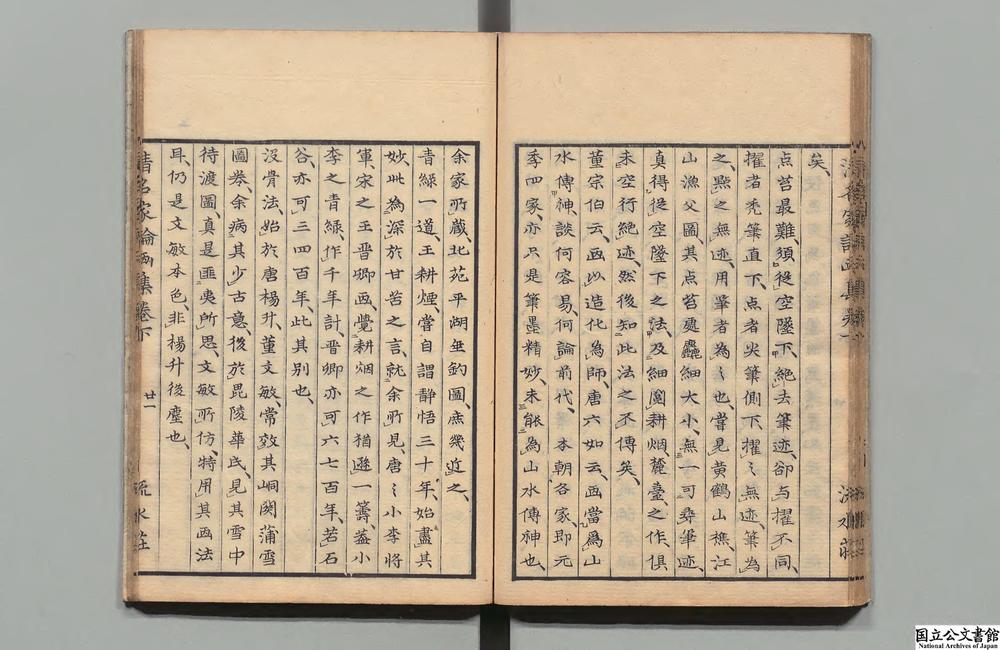 矣、
点苔最難、須從空墜下、絶去筆迹、卻与擢不同、
擢者秃筆直下、点者尖筆側下、擢〻無迹、筆為
之、㸃之無迹、用筆者為〻也、嘗見黄鶴山樵、江
山漁父圖其点苔處、麤細大小、無一可尋筆迹、
真得從空墜下之法、及細閲耕烟、麓臺之作俱
未空行絶迹、然後知此法之不傳矣、
董宗伯云、画以造化為師、唐六如云、画當為山
水傳神、談何容易、何論前代、本朝各家、即元
季四家、亦只是筆墨精妙、未能為山水傳神也、
余家所藏、北苑平湖垂釣圖、庶幾近之、
青緑一道、王耕煙、嘗自謂静悟三十年、始盡其
妙、此為深於甘苦之言、就余所見、唐〻小李將
軍、宋之王晋卿画、覺耕烟之作猶遜一籌、蓋小
李之青緑、作千年計、晋卿亦可六七百年、若石
谷、亦可三四百年、此其别也、
没骨法、始於唐楊升、董文敏、常效其峒関蒲雪
圖、余病其少古意、後於毘陵華氏、見其雪中
待渡圖、真是匪夷所思、文敏所仿、特用其画法
耳、仍是文敏本色、非楊升後塵也、
清名家論画集卷下
廿一
流水荘
国立公文書館
National Archives of Japan